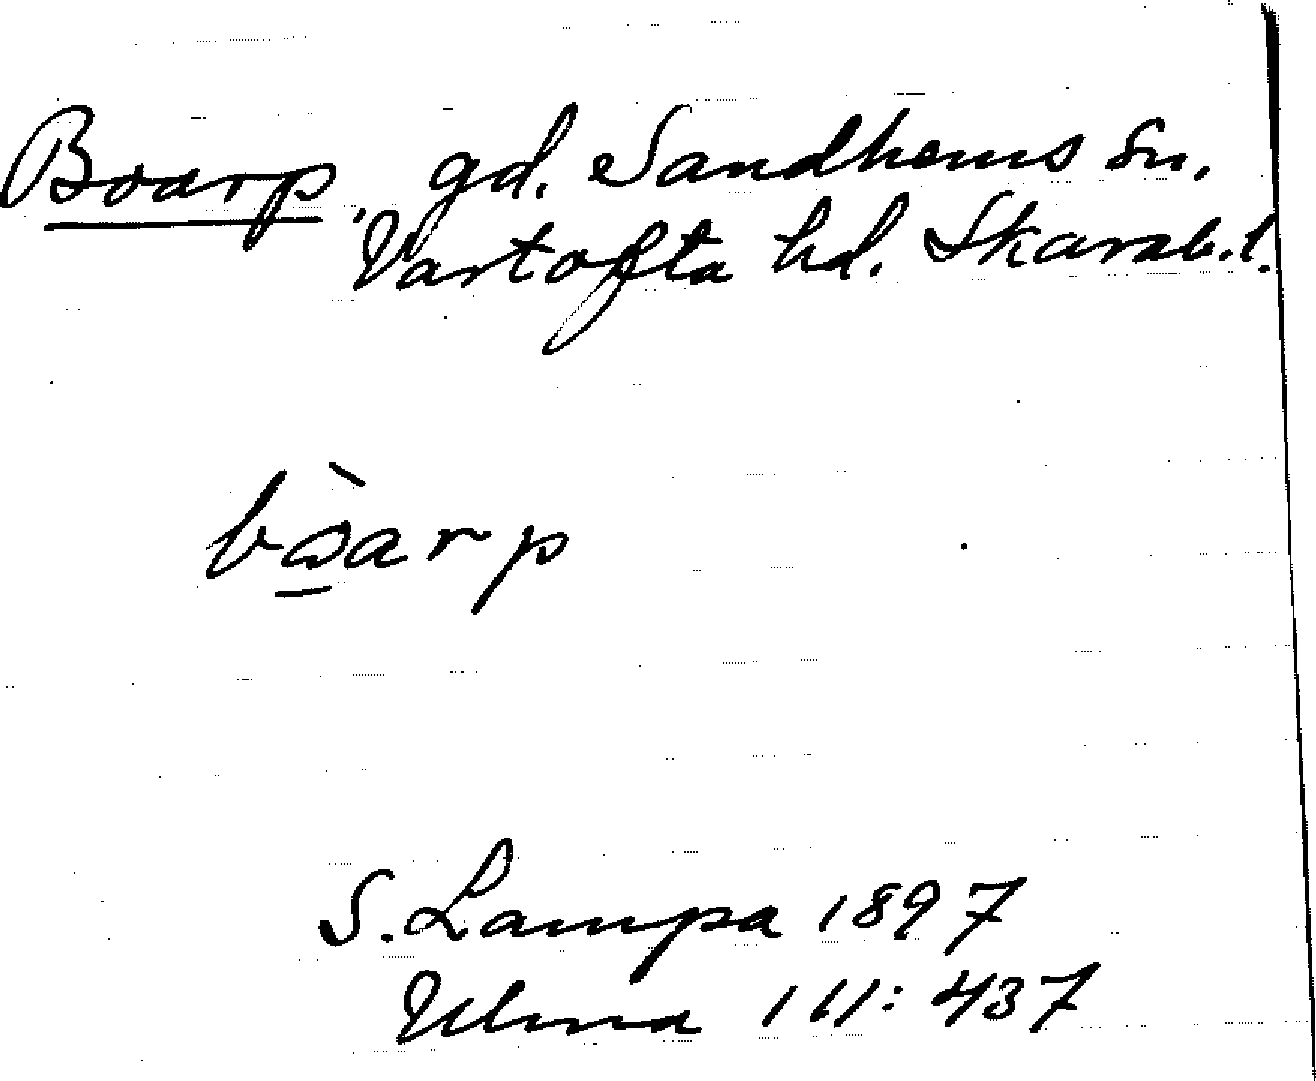 Boarp, gd. Sandhems sn,
Vartofta hd. Skarab. l.
bòarp
S. Lampa 1897
Ulma 111: 437